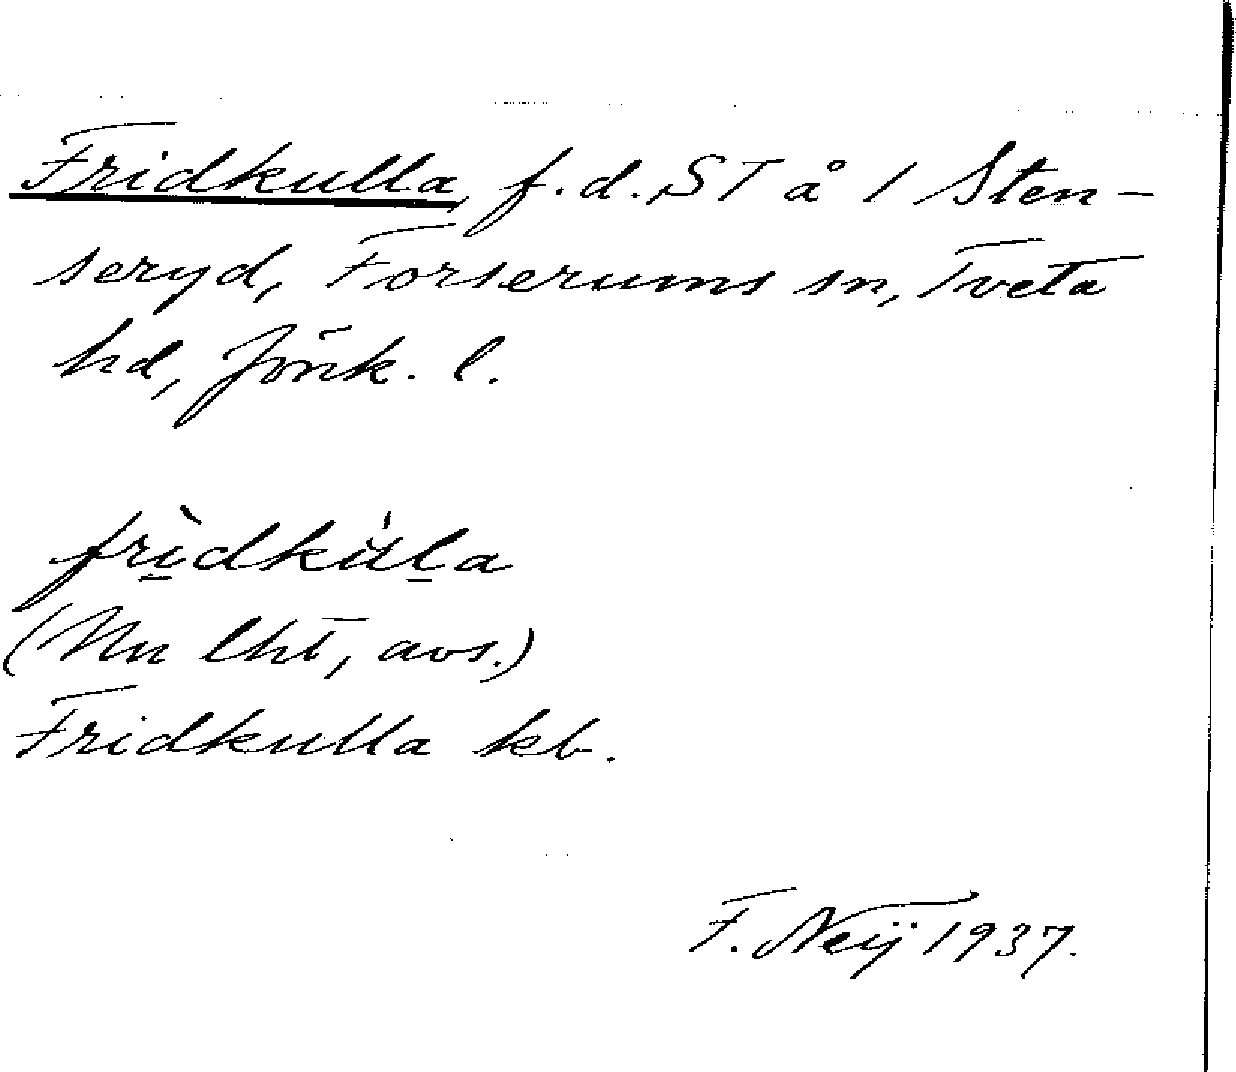 Fridkulla, f.d. ST å 1 Sten-
seryd, Forserums sn, Tveta
hd, Jönk. l.
frı̱̀dkùḻa
(Nn lht, avs.)
Fridkulla kb.
F. Neij 1937.